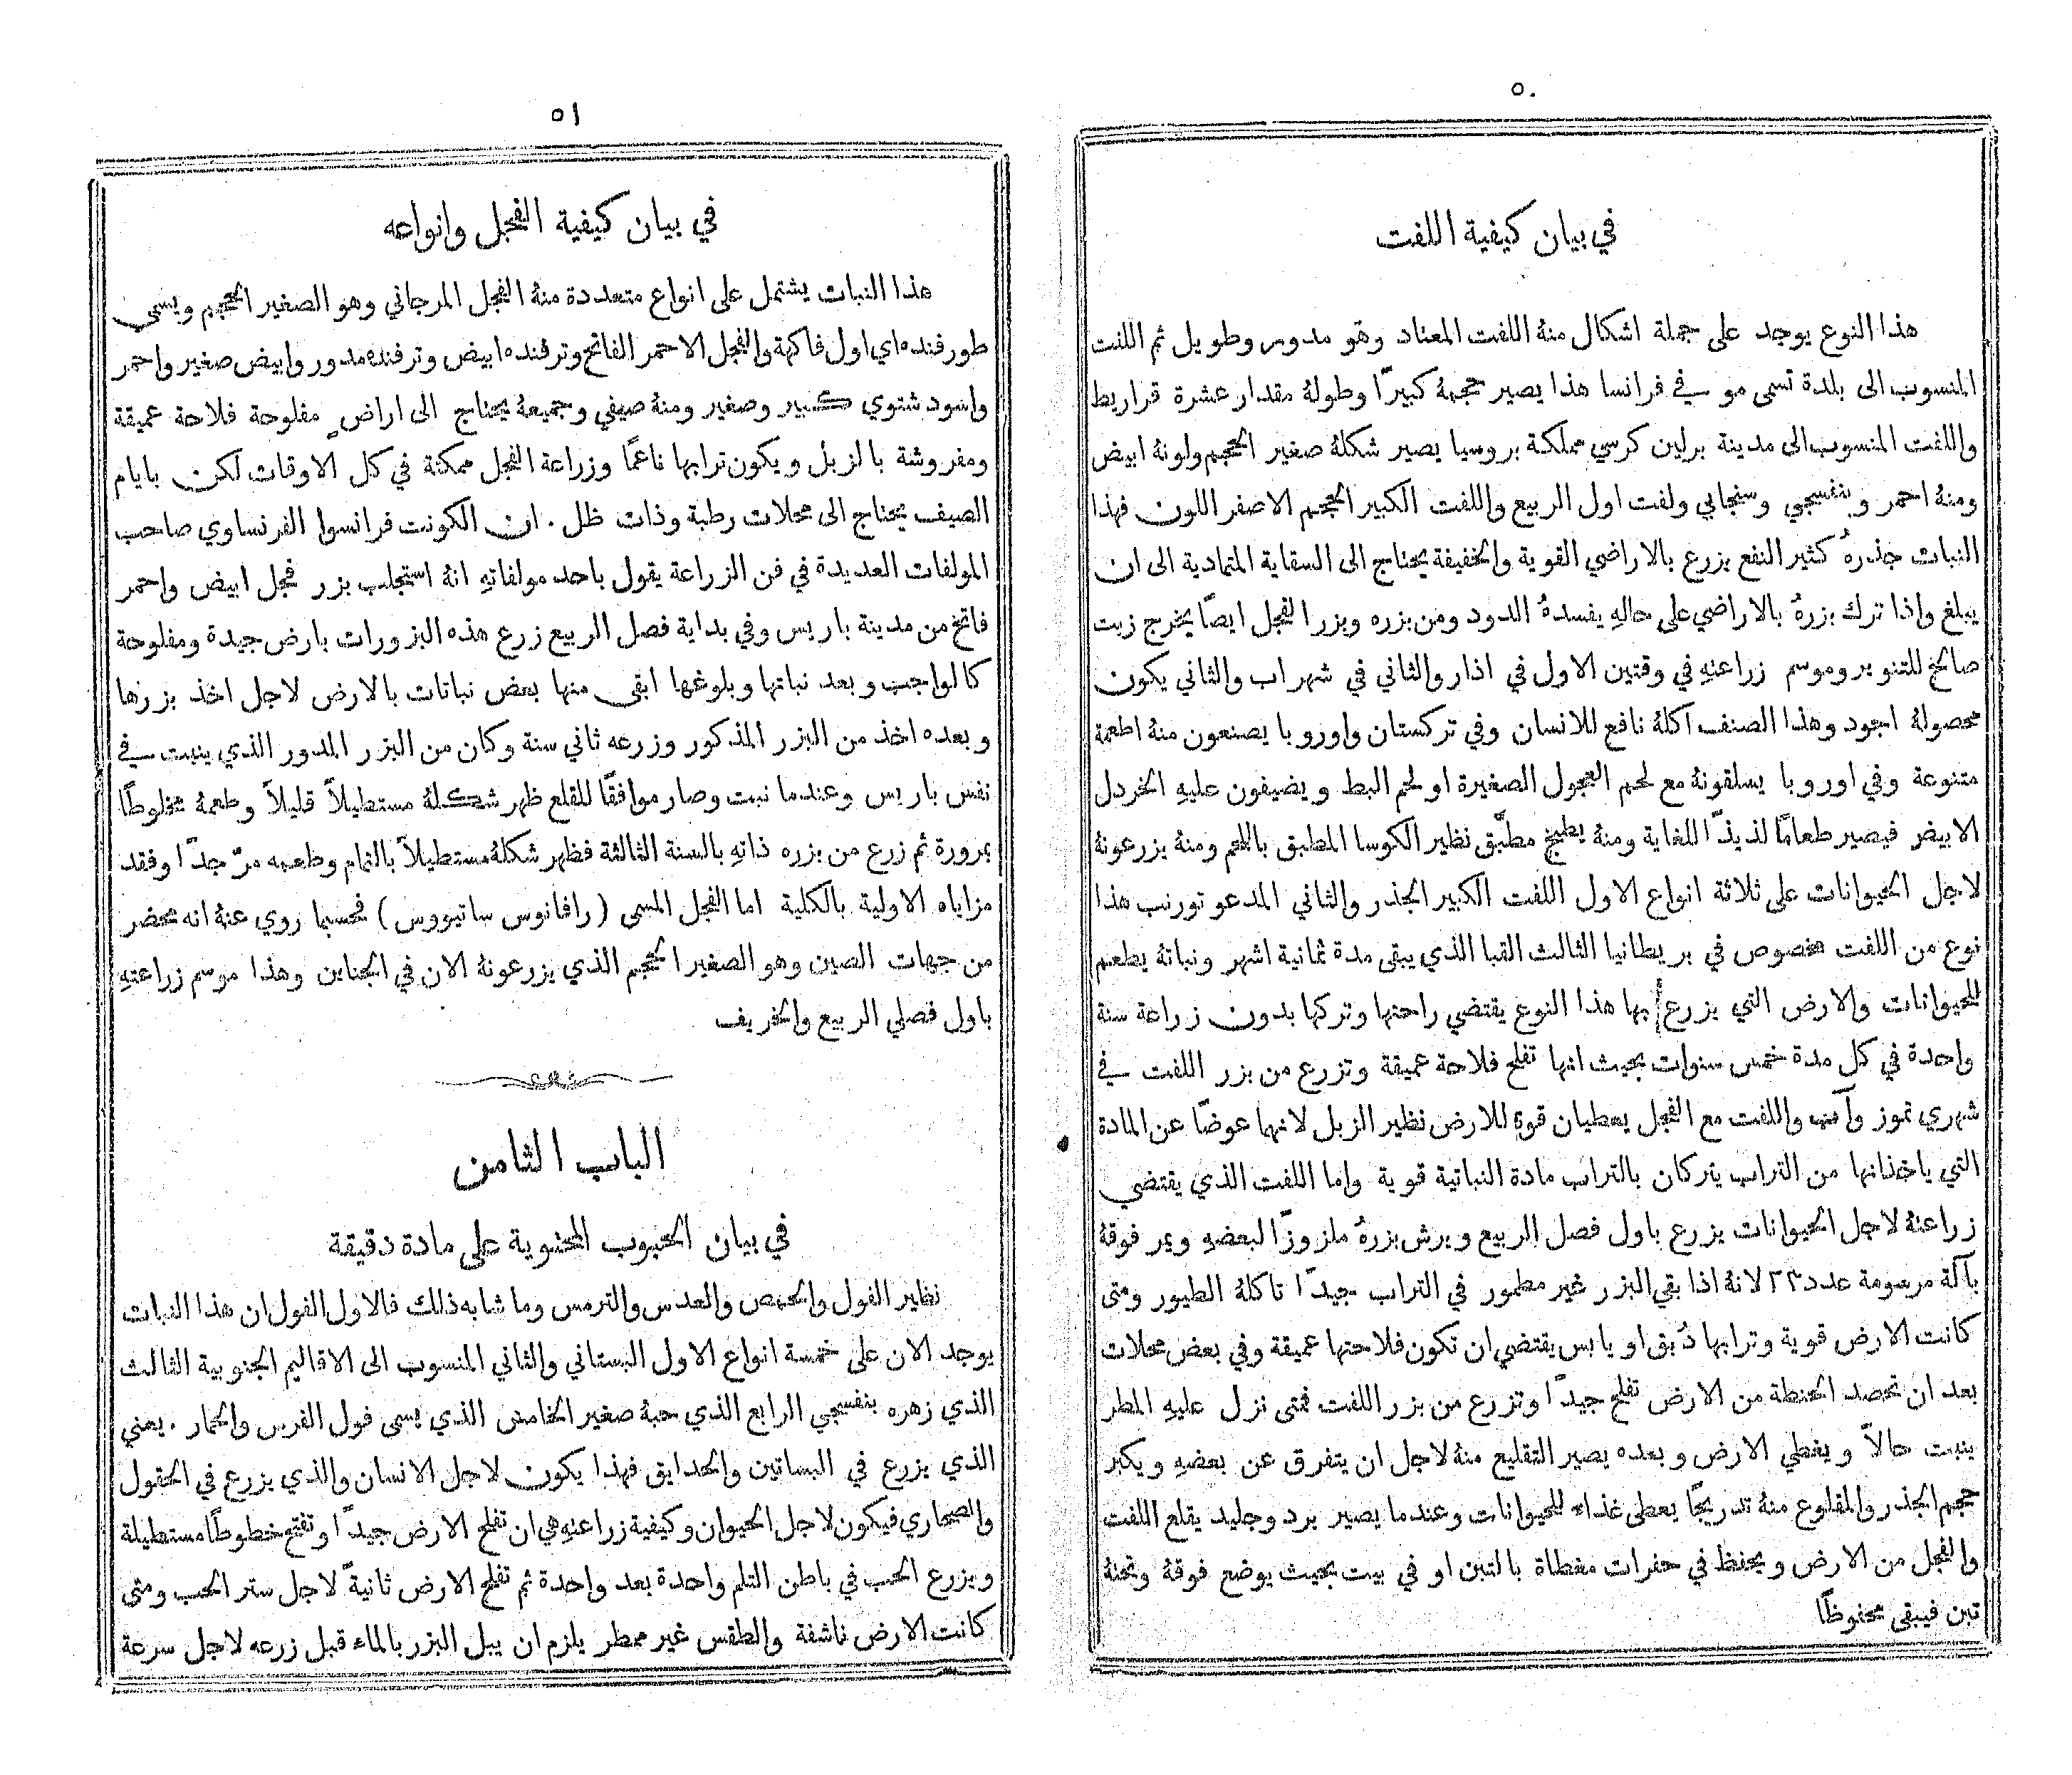 ٥٠
في بيان كيفية اللفت
هذا النوع يوجد على جملة اشكال منهُ اللفت المعتاد وهو مدور وطويل ثم اللفت
المنسوب الى بلدة تسمى مو في فرانسا هذا يصير حجمهُ كبيرًا وطولهُ مقدار عشرة قراريط
واللفت المنسوب الى مدينة برلين كرسي مملكة بروسيا يصير شكلهُ صغير الحجم ولونهُ ابيض
ومنهُ احمر وبنفسجي وسنجابي ولفت اول الربيع واللفت الكبير الحجم الاصفر اللون فهذا
النبات جذرهُ كثير النفع يزرع بالاراضي القوية والخفيفة يحتاج الى السقاية المتمادية الى ان
يبلغ واذا ترك بزرهُ بالاراضي على حالهِ يفسدهُ الدود ومن بزره وبزر الفجل ايضًا يخرج زيت
صالح للتنوير وموسم زراعتهِ في وقتين الاول في اذار والثاني في شهر اب والثاني يكون
محصولهُ اجود وهذا الصنف اكلهُ نافع للانسان وفي تركستان واوروبا يصنعون منهُ اطعمة
متنوعة وفي اوروبا يسلقونهُ مع لحم العجول الصغيرة او لحم البط ويضيفون عليهِ الخردل
الابيض فيصير طعامًا لذيذًا للغاية ومنهُ يطبخ مطبّق نظير الكوسا المطبق باللحم ومنهُ يزرعونهُ
لاجل الحيوانات على ثلاثة انواع الاول اللفت الكبير الجذر والثاني المدعو تورنب هذا
نوع من اللفت مخصوص في بريطانيا الثالث القبا الذي يبقى مدة ثمانية اشهر ونباتهُ يطعم
للحيوانات والارض التي يزرع بها هذا النوع يقتضي راحتها وتركها بدون زراعة سنة
واحدة في كل مدة خمس سنوات بحيث انها تفلح فلاحة عميقة وتزرع من بزر اللفت في
شهري تموز وآب واللفت مع الفجل يعطيان قوة للارض نظير الزبل لانهما عوضًا عن المادة
التي ياخذانها من التراب يتركان بالتراب مادة النباتية قوية واما اللفت الذي يقتضي
زراعتهُ لاجل الحيوانات يزرع باول فصل الربيع ويرش بزرهُ ملزوزًا لبعضهِ ويمر فوقهُ
بآلة مرسومة عدد ٢٣ لانهُ اذا بقي البزر غير مطمور في التراب جيدًا تاكلهُ الطيور ومتى
كانت الارض قوية وترابها دُبق او يابس يقتضي ان تكون فلاحتها عميقة وفي بعض محلات
بعد ان تحصد الحنطة من الارض تفلح جيدًا وتزرع من بزر اللفت فمتى نزل عليهِ المطر
ينبت حالاً ويغطي الارض وبعده يصير التقليع منهُ لاجل ان يتفرق عن بعضهِ ويكبر
حجم الجذر والمقلوع منهُ تدريجًا يعطى غذاء للحيوانات وعندما يصير برد وجليد يقلع اللفت
والفجل من الارض ويحفظ في حفرات مغطاة بالتبن او في بيت بحيث يوضع فوقهُ وتحتهُ
تبن فيبقى محفوظًا
٥١
في بيان كيفية الفجل وانواعه
هذا النبات يشتمل على انواع متعددة منهُ الفجل المرجاني وهو الصغير الحجم ويسمى
طورفنده اي اول فاكهة والفجل الاحمر الفاتح وترفنده ابيض وترفنده مدور وابيض صغير واحمر
واسود شتوي كبير وصغير ومنهُ صيفي وجميعهُ يحتاج الى اراضٍ مفلوحة فلاحة عميقة
ومفروشة بالزبل ويكون ترابها ناعمًا وزراعة الفجل ممكنة في كل الاوقات لكن بايام
الصيف يحتاج الى محلات رطبة وذات ظل . ان الكونت فرانسوا الفرنساوي صاحب
المولفات العديدة في فن الزراعة يقول باحد مولفاتهِ انهُ استجلب بزر فجل ابيض واحمر
فاتح من مدينة باريس وفي بداية فصل الربيع زرع هذه البزورات بارض جيدة ومفلوحة
كالواجب وبعد نباتها وبلوغها ابقى منها بعض نباتات بالارض لاجل اخذ بزرها
وبعده اخذ من البزر المذكور وزرعه ثاني سنة وكان من البزر المدور الذي ينبت في
نفس باريس وعندما نبت وصار موافقًا للقلع ظهر شكلهُ مستطيلاً قليلاً وطعمهُ مخلوطًا
بمرورة ثم زرع من بزره ذاتهِ بالسنة الثالثة فظهر شكلهُ مستطيلاً بالتمام وطعمه مرّ جدًا وفقد
مزاياه الاولية بالكلية اما الفجل المسمى (رافانوس ساتيووس) فحسبما روي عنهُ انه محضر
من جهات الصين وهو الصغير الحجم الذي يزرعونهُ الان في الجناين وهذا موسم زراعتهِ
باول فصلي الربيع والخريف
الباب الثامن
في بيان الحبوب المحتوية على مادة دقيقة
نظير الفول والحمص والعدس والترمس وما شابه ذلك فالاول الفول ان هذا النبات
يوجد الان على خمسة انواع الاول البستاني والثاني المنسوب الى الاقاليم الجنوبية الثالث
الذي زهره بنفسجي الرابع الذي حبهُ صغير الخامس الذي يسمى فول الفرس والحمار . يعني
الذي يزرع في البساتين والحدايق فهذا يكون لاجل الانسان والذي يزرع في الحقول
والصحاري فيكون لاجل الحيوان وكيفية زراعتهِ هي ان تفلح الارض جيدًا وتفتح خطوطًا مستطيلة
ويزرع الحب في باطن التلم واحدة بعد واحدة ثم تفلح الارض ثانيةً لاجل ستر الحب ومتى
كانت الارض ناشفة والطقس غير ممطر يلزم ان يبل البزر بالماء قبل زرعه لاجل سرعة